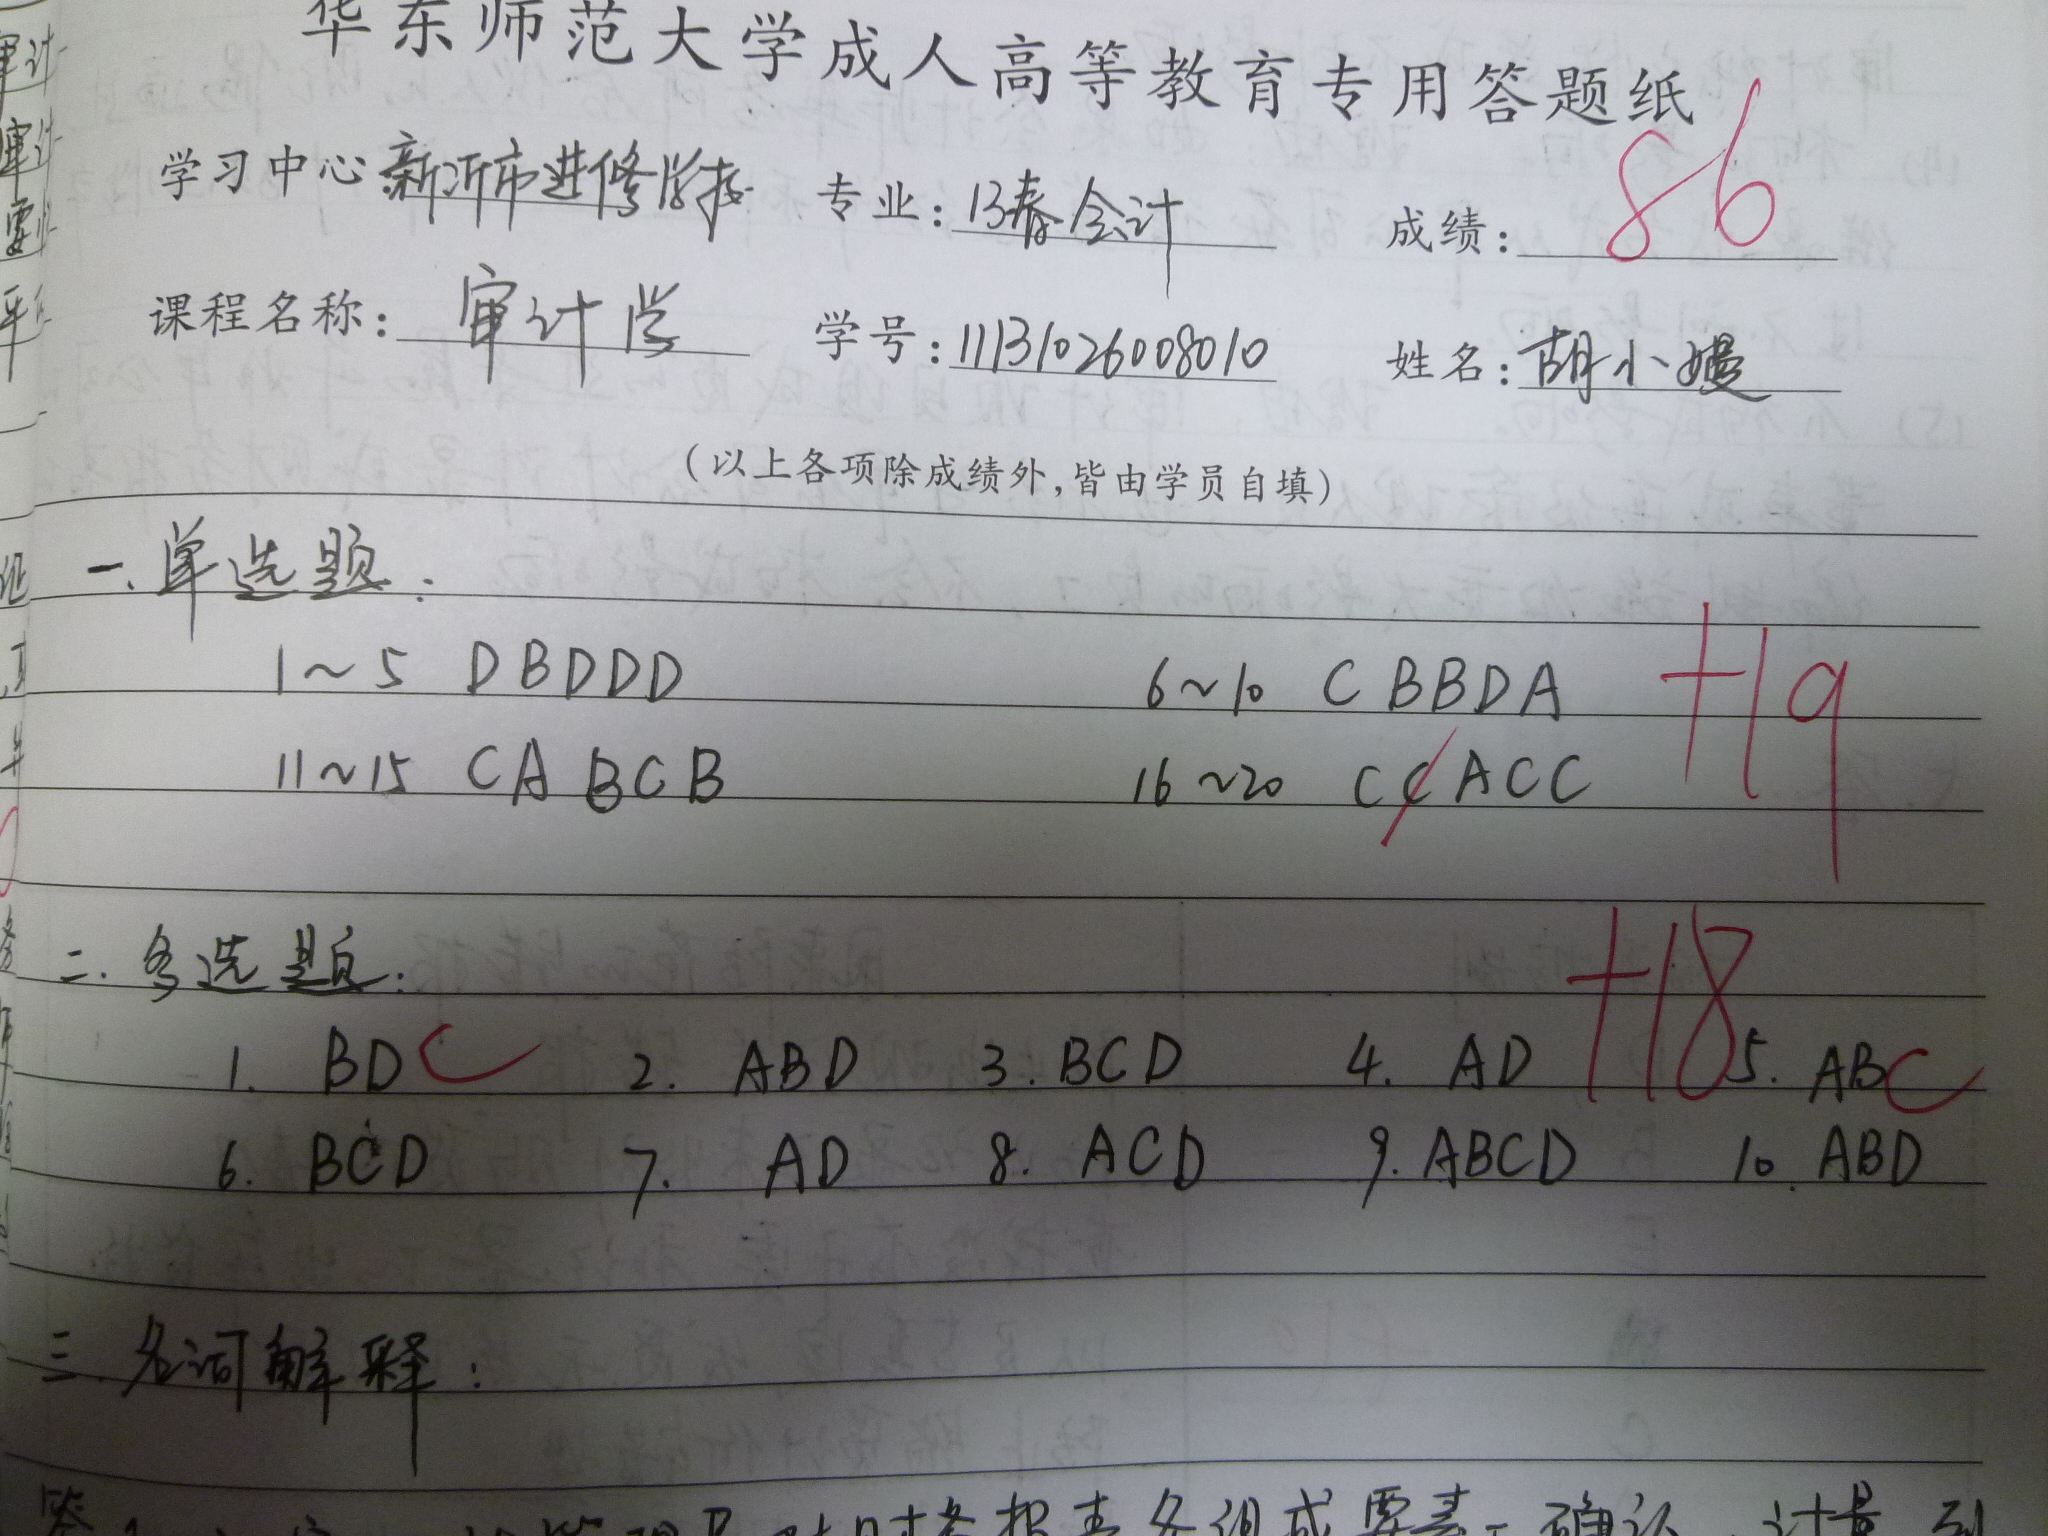 华东师范大学成人高等教育专用答题纸
学习中心 新沂市进修学校 专业: 13春会计 成绩: 86
课程名称: 审计学 学号: 11131026008010 姓名: 胡小嫚
(以上各项除成绩外,皆由学员自填)
一.单选题:
1~5 DBDDD 6~10 CBBDA +19
11~15 CABCB 16~20 CCACC
二.多选题: +18
1. BDC 2. ABD 3. BCD 4. AD 5. ABC
6. BCD 7. AD 8. ACD 9. ABCD 10. ABD
三.名词解释: